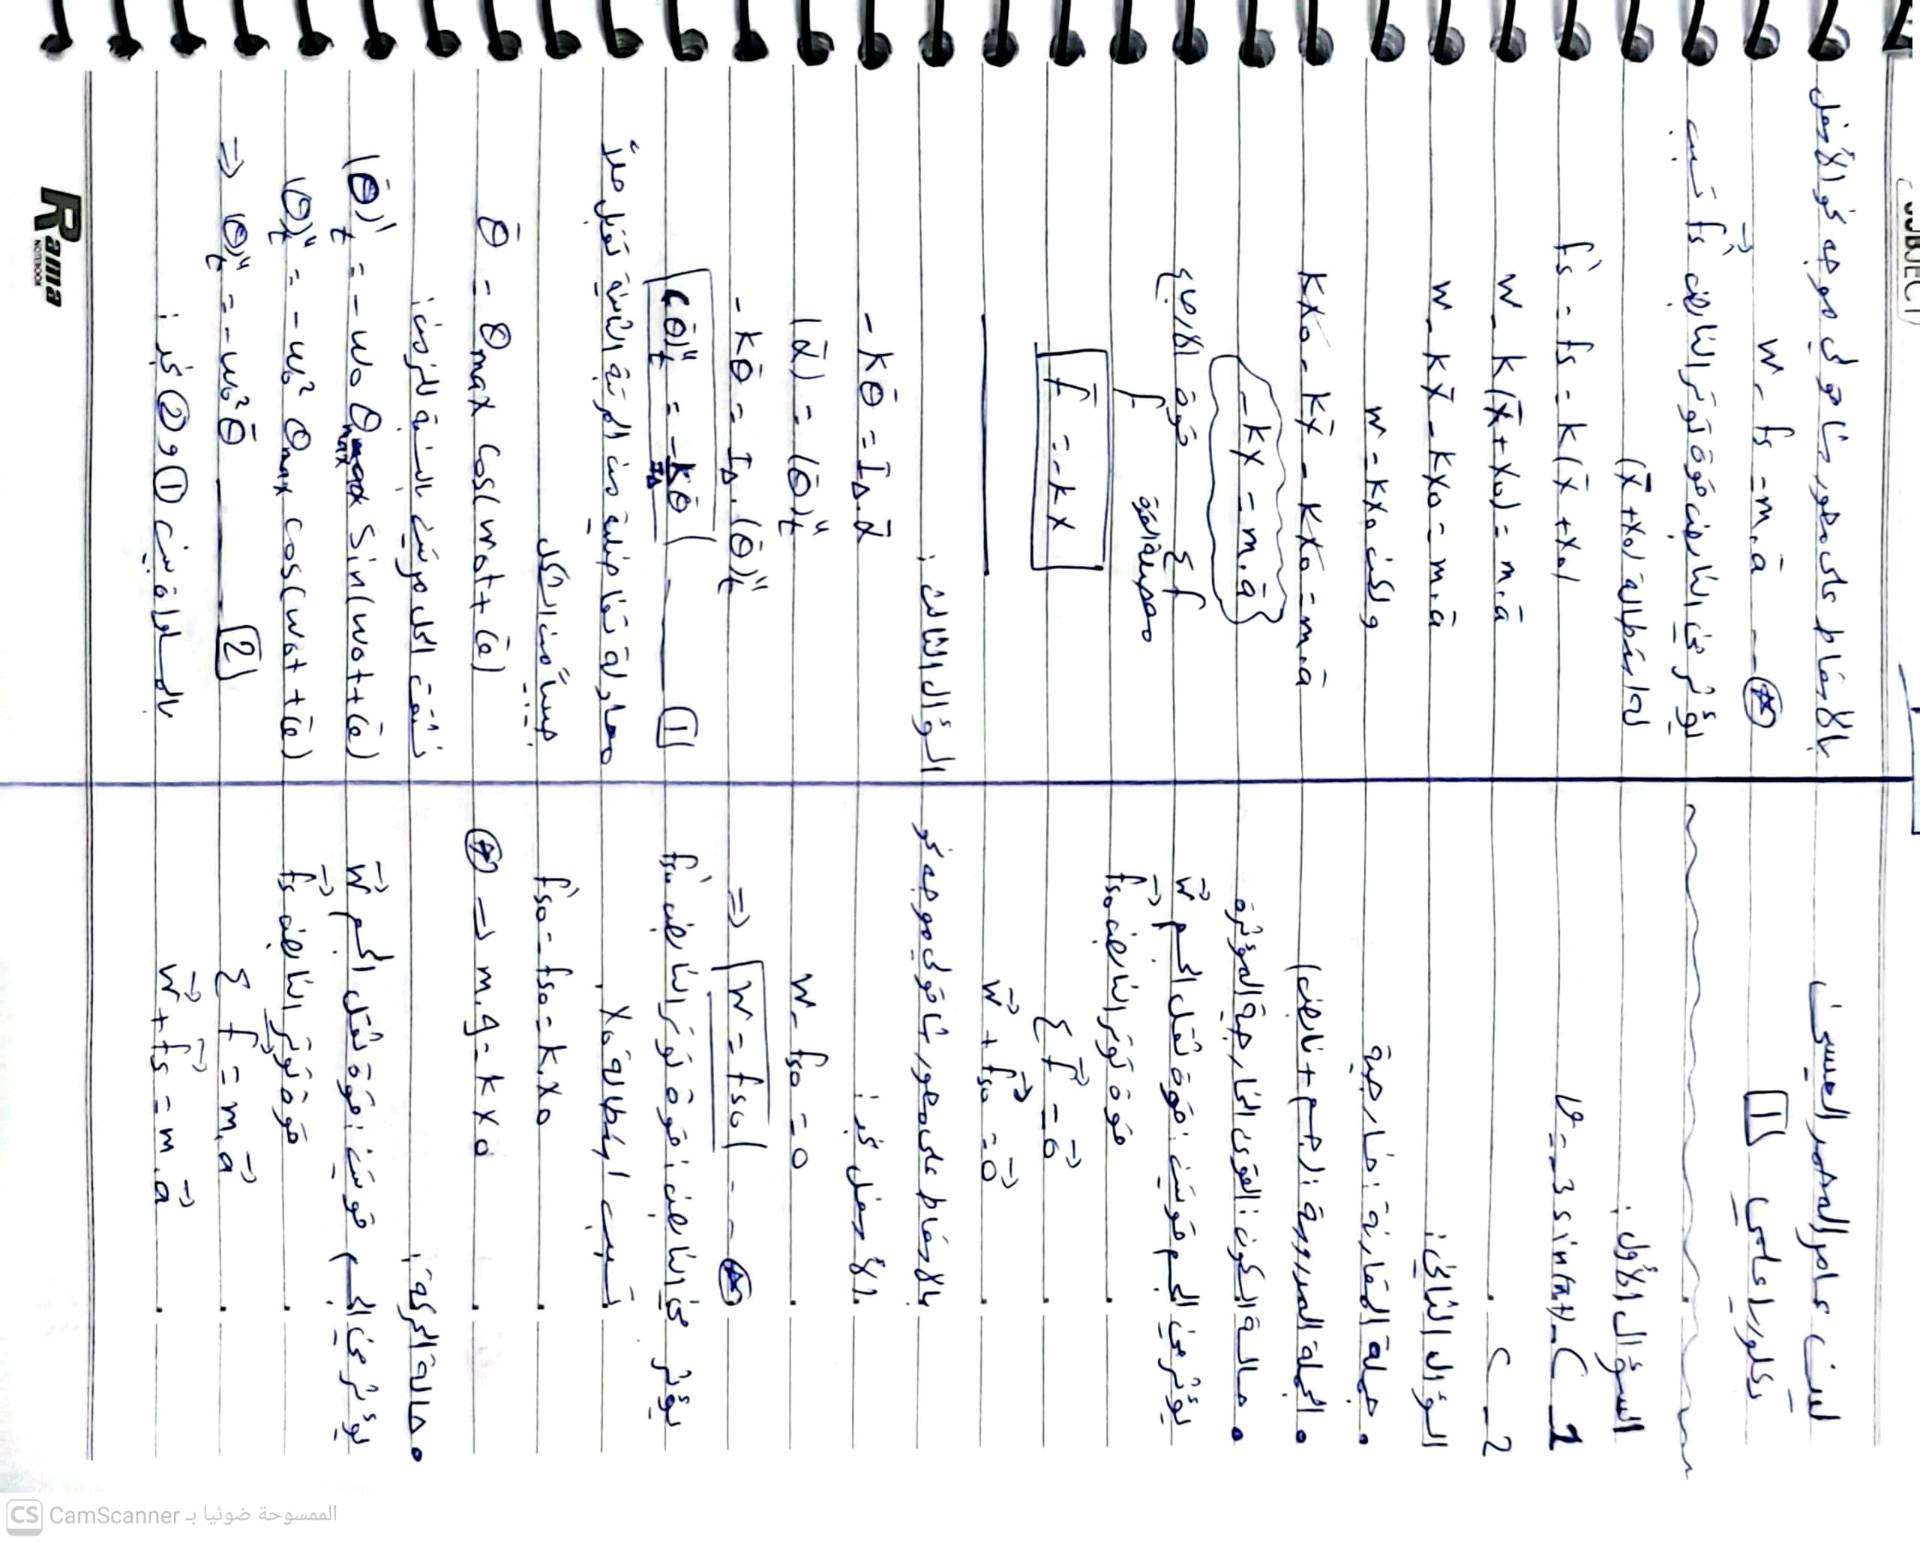 SUBJECT
لين عامر العسى
بكلوريا علمي 1
السؤال الأول:
1_ C _ v = -3 sin(πt)
2_ C
السؤال الثاني:
• جملة المقارنة: خارجية
• الجملة المدروسة: (جسم + نابض)
• حالة السكون: القوى الخارجية المؤثرة
يؤثر في الجسم قوتين: قوة ثقل الجسم w
قوة توتر النابض fs₀
Σ f = 0
w + fs₀ = 0
بالاسقاط على محور شاقولي موجه نحو
الأسفل نجد:
w - fs₀ = 0
⇒ w = fs₀ - -
يؤثر في النابض: قوة توتر النابض f's₀
تسبب استطالة x₀
f's₀ = fs₀ = k.x₀
⇒ m.g = k x₀
• حالة الحركة:
يؤثر في الجسم قوتين: قوة ثقل الجسم w
قوة توتر النابض fs
Σ f = m.a
w + fs = m.a
بالاسقاط على محور شاقولي موجه نحو الأسفل
w - fs = m.a -
يؤثر في النابض قوة توتر النابض f's تسبب
له استطالة (x + x₀)
f's = fs = k(x + x₀)
w - k(x + x₀) = m.a
w - kx - kx₀ = m.a
ولكن w = kx₀
kx₀ - kx - kx₀ = m.a
-kx = m.a
Σf قوة الارجاع
محصلة القوة f
f = -kx
السؤال الثالث:
-kθ = I∆.α
(α) = (θ)''t
-kθ = I∆.(θ)''t
(θ)''t = -k/I∆ θ 1
معادلة تفاضلية من المرتبة الثانية تقبل حلاً
جيبياً من الشكل
θ = θmax cos(ω₀t + φ)
نشتق الحل مرتين بالنسبة للزمن:
(θ)'t = -ω₀ θmax sin(ω₀t + φ)
(θ)''t = -ω₀² θmax cos(ω₀t + φ)
⇒ (θ)''t = -ω₀² θ 2
بالمطابقة بين 1 و 2 نجد:
Rama
NOTEBOOK
الممسوحة ضوئيا بـ CamScanner
CS